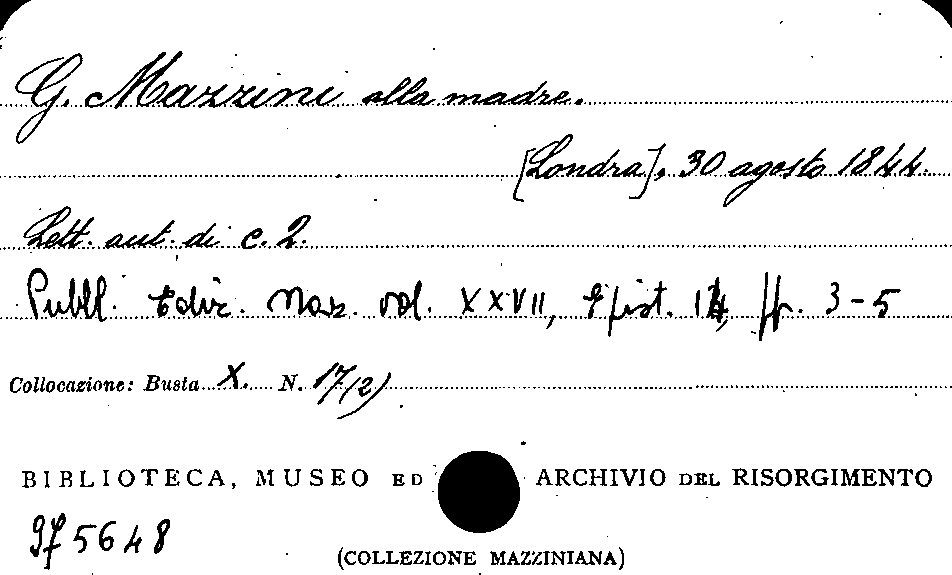 G. Mazzini alla madre.
[Londra], 30 agosto 1844.
Lett. aut. di c. 2.
Pubbl. Ediz. Naz. vol. XXVII, Epist. 14, pp. 3-5
Collocazione: Busta X. N. 17(2)
BIBLIOTECA, MUSEO ED ARCHIVIO DEL RISORGIMENTO
5648
(COLLEZIONE MAZZINIANA)